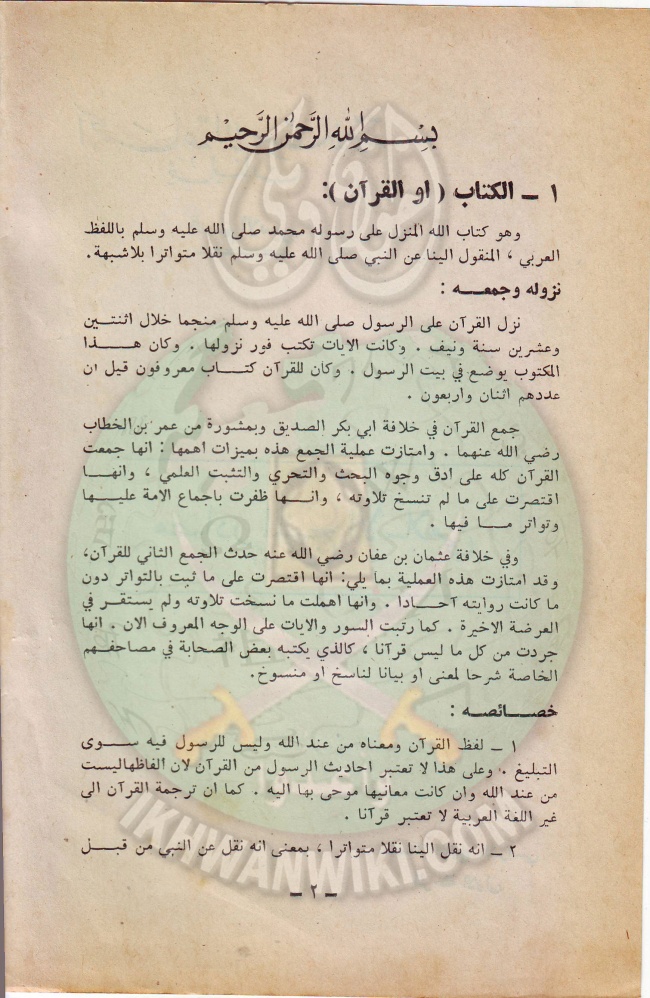 بسم الله الرحمن الرحيم
١ ـ الكتاب ( او القرآن ):
وهو كتاب الله المنزل على رسوله محمد صلى الله عليه وسلم باللفظ
العربي ، المنقول الينا عن النبي صلى الله عليه وسلم نقلا متواترا بلاشبهة.
نزوله وجمعـــه :
نزل القرآن على الرسول صلى الله عليه وسلم منجما خلال اثنتـين
وعشرين سنة ونيف . وكانت الايات تكتب فور نزولها . وكان هـــذا
المكتوب يوضع في بيت الرسول . وكان للقرآن كتـــاب معروفون قيل ان
عددهم اثنان واربعون .
جمع القرآن في خلافة ابي بكر الصديق وبمشورة من عمر بن الخطاب
رضي الله عنهما . وامتازت عملية الجمع هذه بميزات اهمها : انها جمعت
القرآن كله على ادق وجوه البحث والتحري والتثبت العلمي ، وانهـــا
اقتصرت على ما لم تنسخ تلاوته ، وانـــها ظفرت باجماع الامة عليـــها
وتواتر مـــا فيها .
وفي خلافة عثمان بن عفان رضي الله عنه حدث الجمع الثاني للقرآن،
وقد امتازت هذه العملية بما يلي: انها اقتصرت على ما ثبت بالتواتر دون
ما كانت روايته آحـــادا . وانها اهملت ما نسخت تلاوته ولم يستقـــر في
العرضة الاخيرة . كما رتبت السور والايات على الوجه المعروف الان . انها
جردت من كل ما ليس قرآنا ، كالذي يكتبه بعض الصحابة في مصاحفـهم
الخاصة شرحا لمعنى او بيانا لناسخ او منسوخ.
خصـــائصه :
١ ـ لفظ القرآن ومعناه من عند الله وليس للرسول فيه ســـوى
التبليغ . وعلى هذا لا تعتبر احاديث الرسول من القرآن لان الفاظهاليست
من عند الله وان كانت معانيها موحى بها اليه . كما ان ترجمة القرآن الى
غير اللغة العربية لا تعتبر قرآنا .
٢ ـ انه نقل الينا نقلا متواترا ، بمعنى انه نقل عن النبي من قبـــل
ـ ٢ ـ
IKHWANWIKI.COM